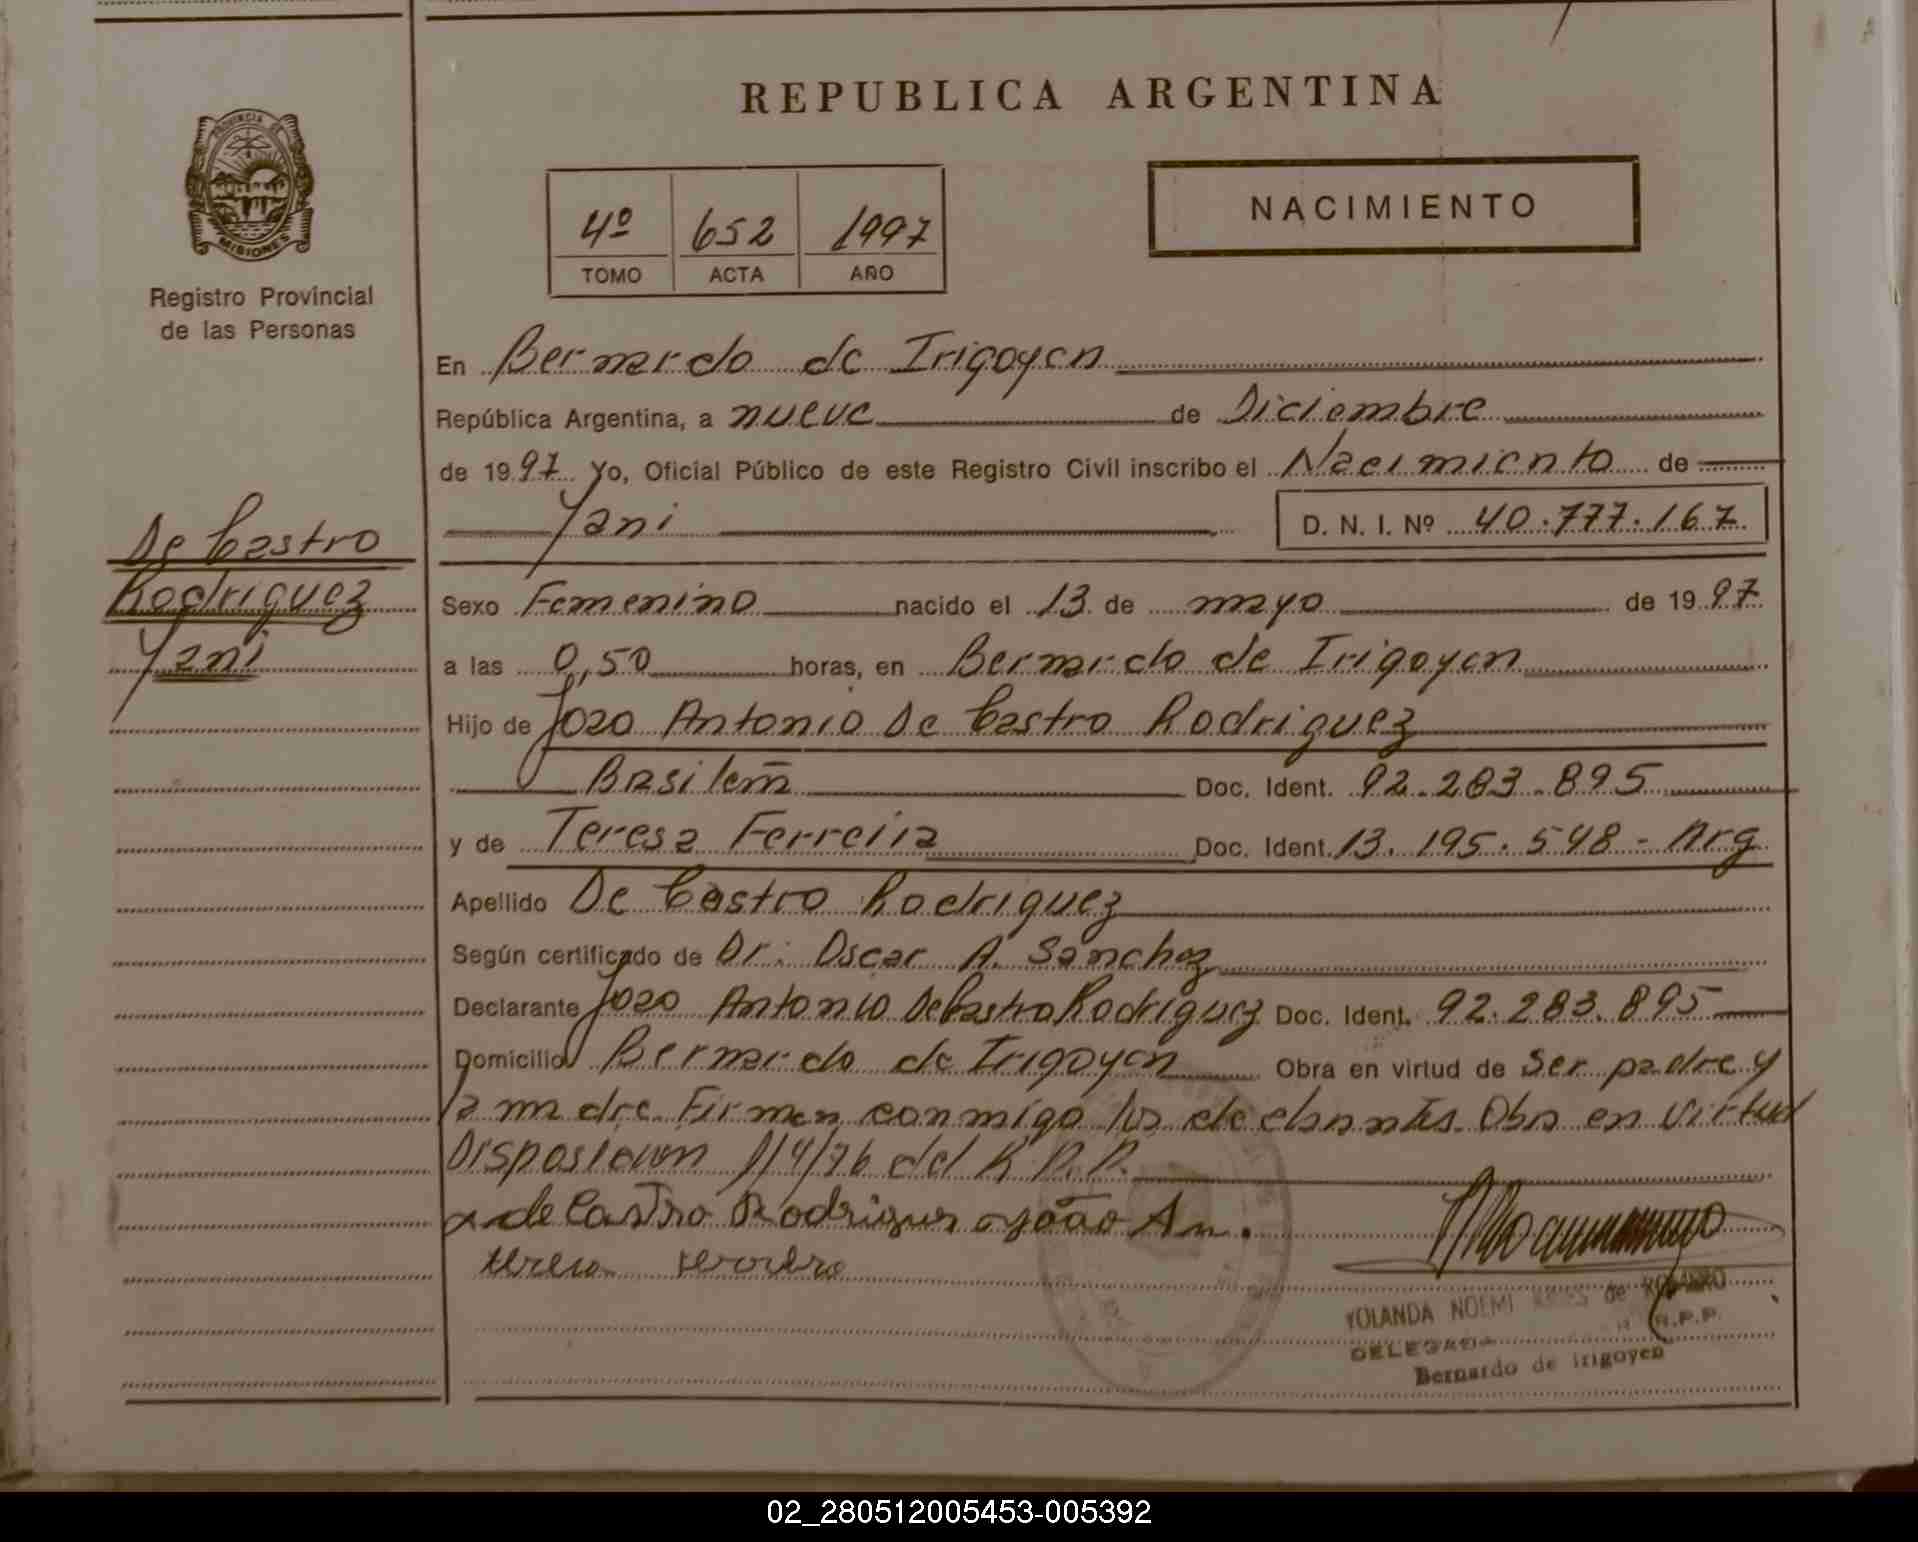 REPUBLICA ARGENTINA
PROVINCIA DE
MISIONES
Registro Provincial
de las Personas
4º 652 1997
TOMO ACTA AÑO
NACIMIENTO
En Bernardo de Irigoyen
República Argentina, a nueve de Diciembre
de 1997 Yo, Oficial Público de este Registro Civil inscribo el Nacimiento de
Yani D. N. I. Nº 40.777.167
De Castro
Rodriguez
Yani
Sexo Femenino nacido el 13 de mayo de 1997
a las 0,50 horas, en Bernardo de Irigoyen
Hijo de Joao Antonio De Castro Rodriguez
Brasileña Doc. Ident. 92.283.895
y de Teresa Ferreira Doc. Ident. 13.195.548 - Arg
Apellido De Castro Rodriguez
Según certificado de Dr: Oscar A. Sanchez
Declarante Joao Antonio De Castro Rodriguez Doc. Ident. 92.283.895
Domicilio Bernardo de Irigoyen Obra en virtud de Ser padre y
la madre. Firman conmigo los declarantes. Obra en virtud
Disposicion 114/76 del R.P.P.
de Castro Rodrigues João An.
YOLANDA NOEMI de ROMERO
DELEGADA R.P.P.
Bernardo de Irigoyen
02_280512005453-005392